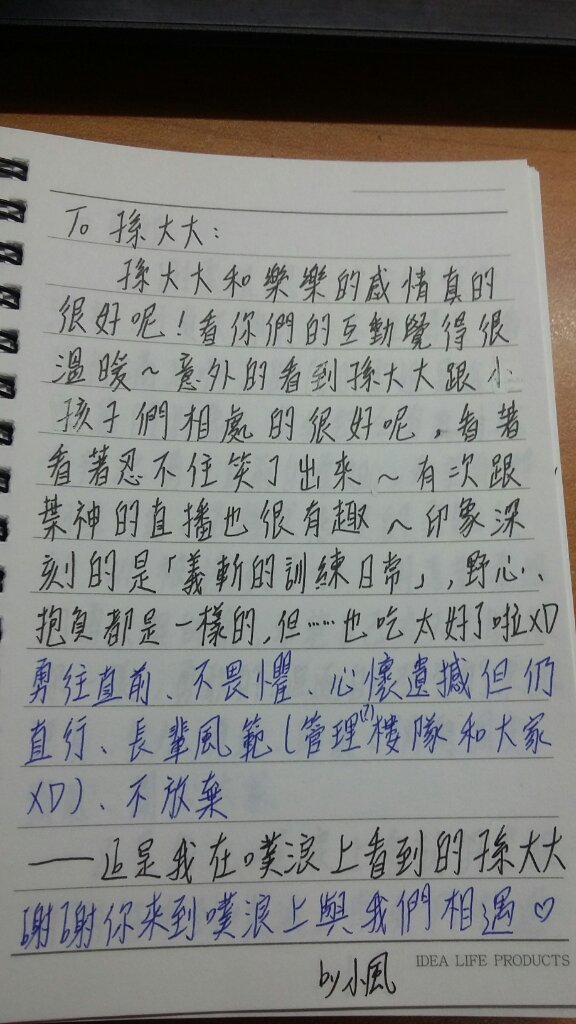 To 孫大大:
孫大大和樂樂的感情真的
很好呢!看你們的互動覺得很
溫暖~意外的看到孫大大跟小
孩子們相處的很好呢,看著
看著忍不住笑了出來~有次跟
葉神的直播也很有趣~印象深
刻的是「義斬的訓練日常」,野心、
抱負都是一樣的,但……也吃太好了啦XD
勇往直前、不畏懼、心懷遺憾但仍
直行、長輩風範(管理(?)樓隊和大家
XD)、不放棄
——這是我在噗浪上看到的孫大大
謝謝你來到噗浪上與我們相遇♡
by小風
IDEA LIFE PRODUCTS